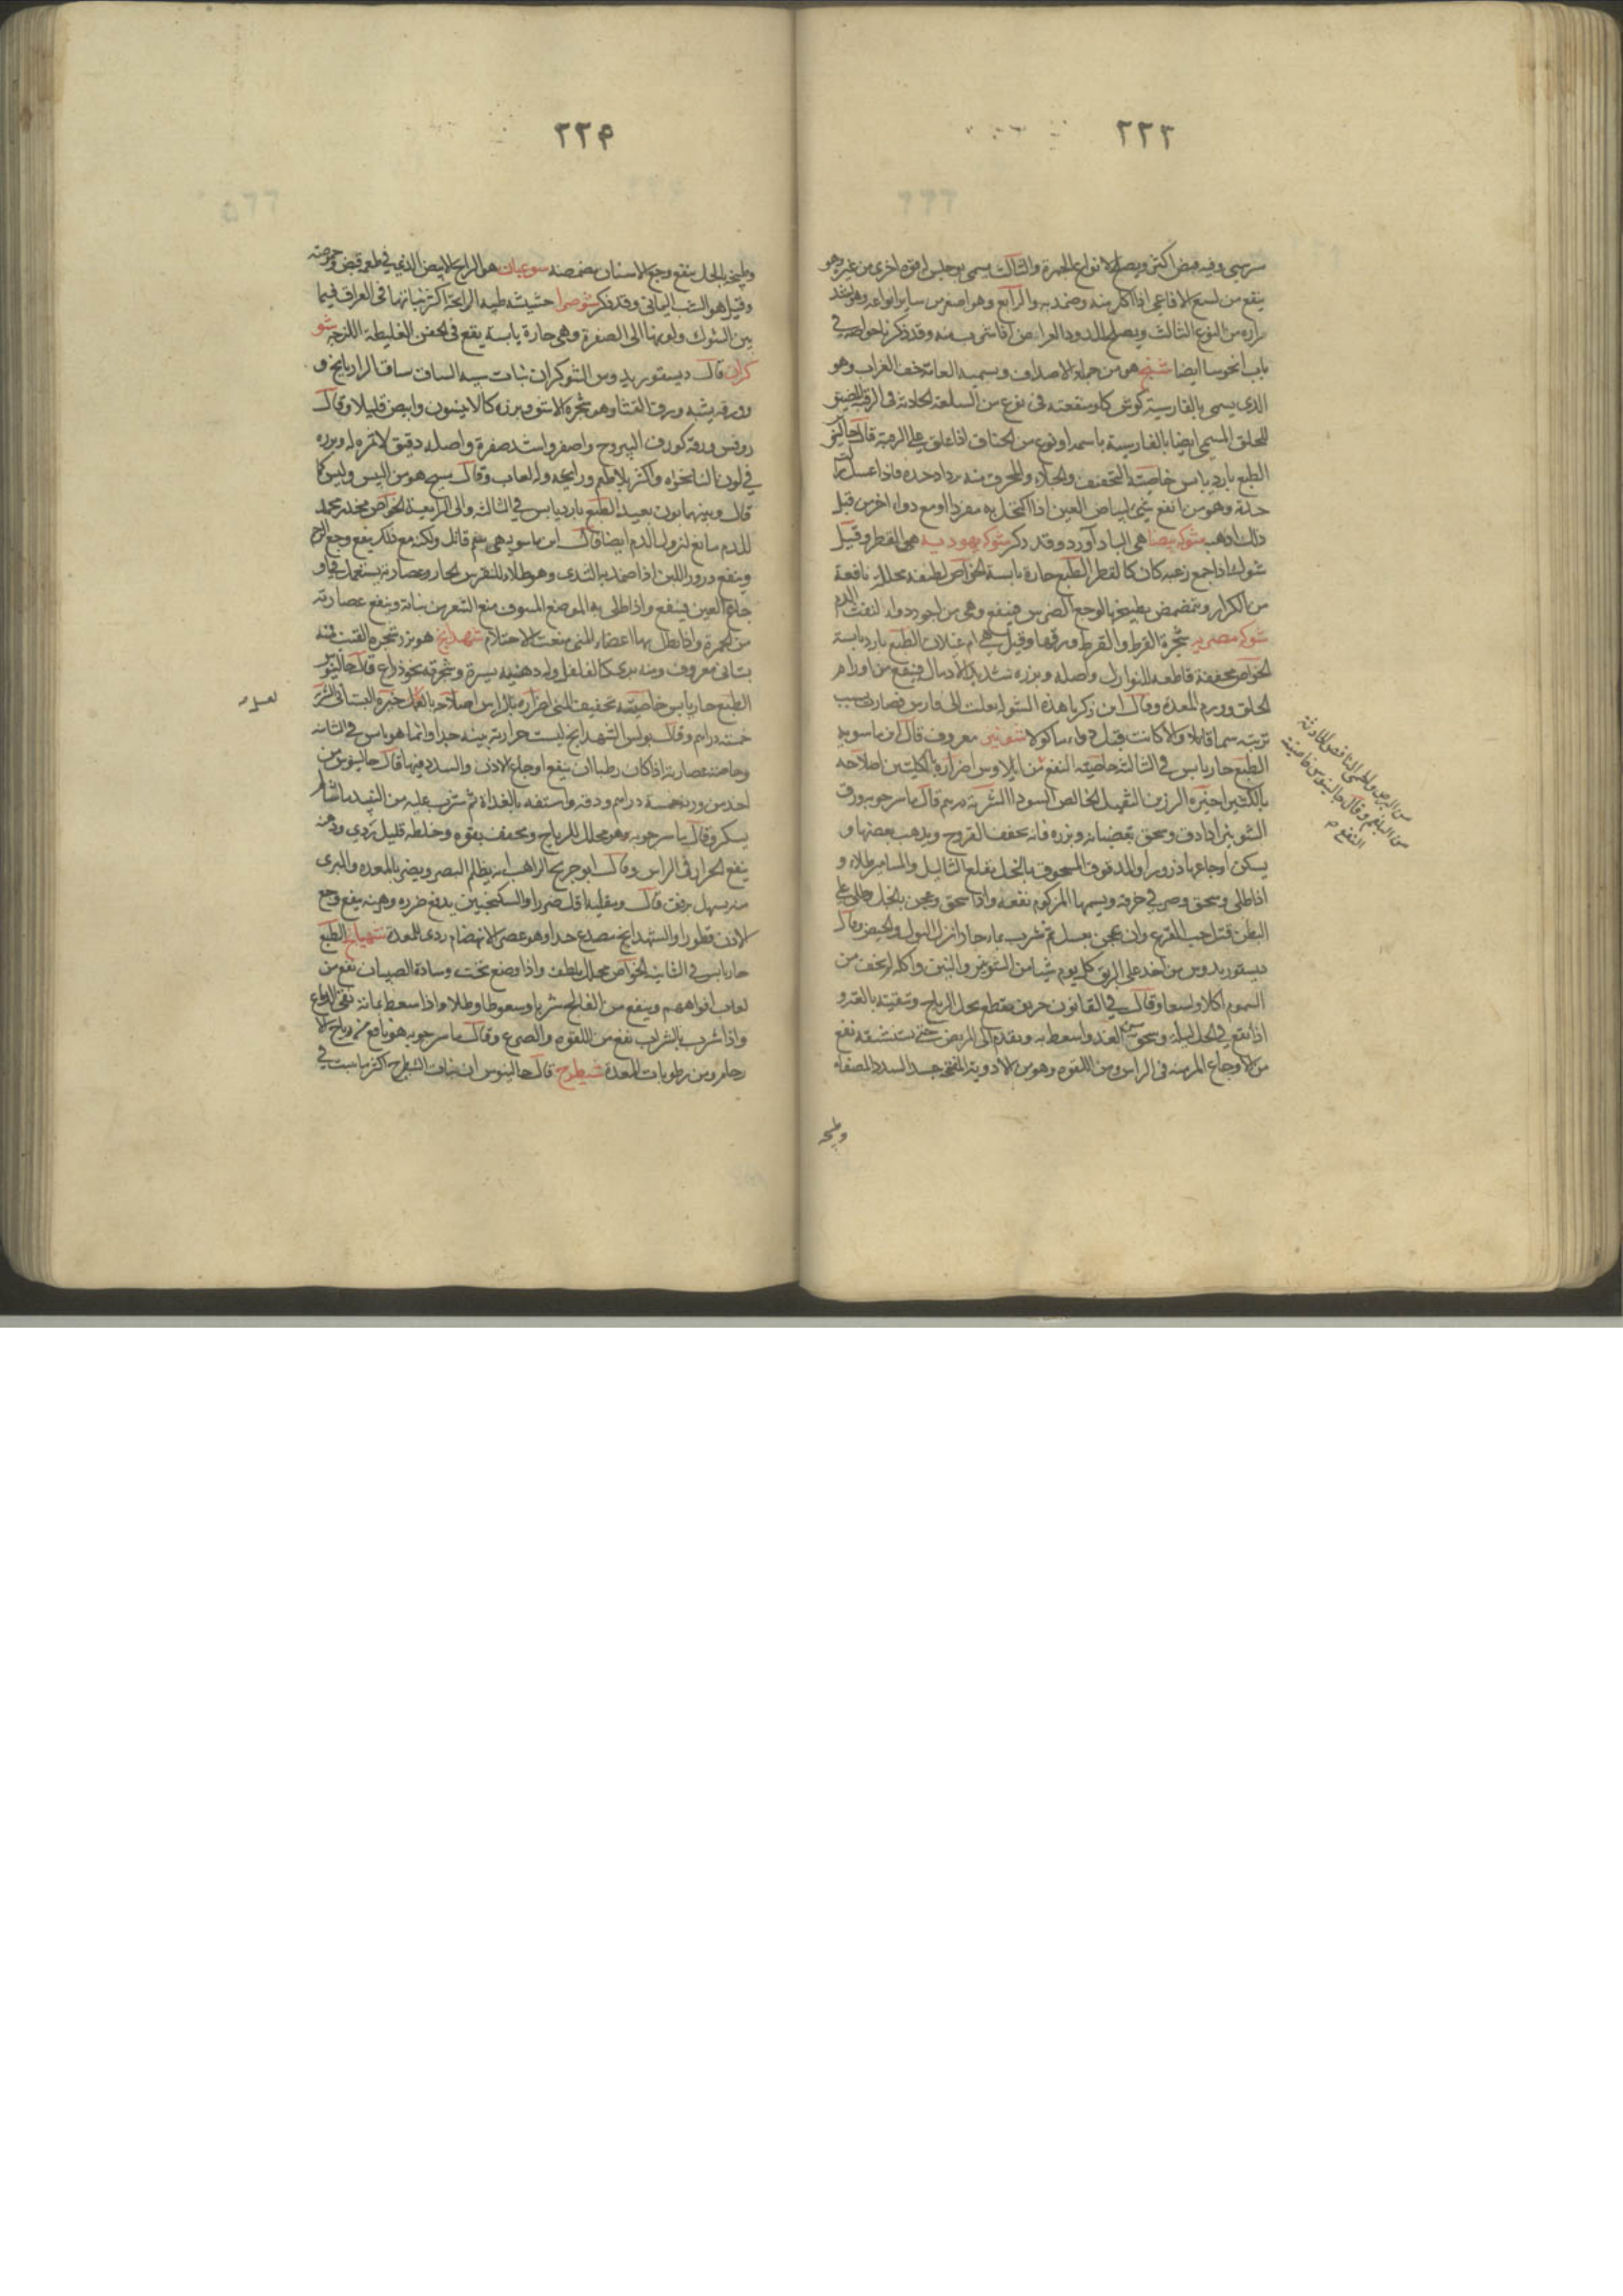 ٢٢٣
وفيه قبض اكثر ويصلح لانواع الحمرة والثالث يسمى
ينفع من لسع الافاعي اذا اكل منه وضمد به والرابع وهو اصغر من ساير انواعه
من النوع الثالث ويصلح للدود العراض اذا شرب منه وقد ذكرنا خواصه في
باب انخوسا ايضا شنج هو من جملة الاصداف ويسميه العامة خف الغراب وهو
الذي يسمى بالفارسية كوش ومنفعته في نوع من السلعة الحادثة في الرقبة
للحلق المسمى ايضا بالفارسية باسمه او نوع من الخناق اذا علق على الرقبة قال جالينوس
الطبع بارد يابس خاصيته التجفيف والجلاء والمحرق منه يزداد حدة فاذا غسل
حدة وهو من انفع شئ لبياض العين اذا اكتحل به مفردا او مع دواء اخر من قبل
ذلك اذهبه شوكه بيضا هي الباداورد وقد ذكر شوكه يهوديه هي القطر وقيل
كان كالقطر الطبع حارة يابسة الخواص لطيفة محللة نافعة
من الكزاز ويتمضمض بطبيخها لوجع الضرس فينفع وهي من اجود دواء لنفث الدم
شوكه مصريه شجرة القرط والقرظ ورقها وقيل هي ام غيلان الطبع بارد يابسة
الخواص مجففة قاطعة للنوازل واصله وبزره شديد الادمال فينفع من اورام
الحلق وورم المعدة وقال ابن زكريا هذه الشوكة نقلت الى فارس فصارت بسبب
تربته سما قاتلا والا كانت قبل دواء ماكولا شونيز معروف قال ابن ماسويه
الطبع حار يابس في الثالثة خاصيته النفع من ايلاوس اضراره بالكليتين اصلاحه
بالكثيرا خيره الرزين الثقيل الخالص السودا الشربة درهم قال ماسرجويه ورق
الشونيز اذا دق وسحق بقضبانه وبزره فانه يجفف القروح ويذهب بعضها و
يسكن اوجاعها ذرورا والمدقوق المسحوق بالخل يقلع الثاليل والمسامير طلاء و
اذا طلي وسحق وصر في خرقة ويشمها المزكوم نفعه واذا سحق وعجن بالخل وطلي على
البطن قتل حب القرع وان عجن بعسل ثم شرب بماء حار انزل البول والحيض وقال
ديسقوريدوس من اخذ على الريق كل يوم شيا من الشونيز والتين واكله لم يخف من
السموم اكلا ولسعا وقال في القانون حريف مقطع محلل الرياح وتنقيته بالقدر
اذا نقع في الخل ليلة وسحق من الغد واسعط به وتقدم الى المريض حتى يستنشقه نفع
من الاوجاع المزمنة في الراس ومن اللقوة وهو من الادوية المفتحة جدا لسدد المصفاة
وطبيخه
من البلغم وقال جالينوس خاصيته
النفع
٢٢٩
وطبيخه بالخل ينفع وجع الاسنان مضمضة سوعيان هو الزاج الابيض الذي في طعمه قبض وحموضة
وقيل هو الشب اليماني وقد ذكر شوصرا حشيشة طيبة الرايحة اكثر نباتها في العراق فيما
بين الشوك ولونها الى الصفرة وهي حارة يابسة يقع في الحقن الغليظة اللزجة شو
كران قال ديسقوريدوس الشوكران نبات شبيه الساق ساق الرازيانج و
ورقه يشبه ورق القثا وهو شجرة وبزره كالانيسون وابيض قليلا وقال
روفس ورقه كورق اليبروح واصفر واشد صفرة واصله دقيق لا ثمرة له وبزره
في لون النانخواه واكثر بلا طعم ورايحة وله لعاب وقال مسيح هو من البيش وليس كما
قال وبينهما بون بعيد الطبع بارد يابس في الثالثة والى الرابعة الخواص مخدر مجمد
للدم مانع لنزول الدم ايضا قال ابن ماسويه هي سم قاتل ولكنه مع ذلك ينفع وجع الرحم
وينفع درور اللبن اذا ضمد به الثدي وهو طلاء للنقرس الحار وعصارته يستعمل في
وجاع العين فينفع واذا طلي به الموضع المنتوف منع الشعر من نباته وينفع عصارته
من الحمرة واذا يطل بها اعضاء المني منعت الاحتلام شهدانج هو بزر شجرة القنب منه
بستاني معروف ومنه بري كالفلفل وله دهنية يسيرة وشجرته نحو ذراع قال جالينوس
الطبع حار يابس خاصيته تجفيف المني اضراره بالراس اصلاحه خيره البستاني الشربة
خمسة دراهم وقال بولس الشهدانج ليست حرارته بينة جدا وانما هو يابس في الثانية
وخاصة عصارته اذا كان رطبا ان ينفع اوجاع الاذن والسدد فيها قال جالينوس من
اخذ من ورقه خمسة دراهم ودقه واستفه بالغداة ثم شرب عليه من النبيذ ما شاء لم
يسكر وقال ماسرجويه وهو محلل للرياح ومجفف بقوة وخلطه قليل ردي ودهنه
ينفع الحرارة في الراس وقال ابو جريج الراهب انه يظلم البصر ويضر بالمعدة والبري
منه يسهل برفق قال وبقلته اقل ضررا والسكنجبين يدفع ضرره ودهنه ينفع وجع
الاذن قطورا والشهدانج مصدع جدا وهو عسر الانهضام ردي للمعدة شهيانج الطبع
حار يابس في الثانية الخواص محلل ملطف واذا وضع تحت وسادة الصبيان نفع من
لعاب افواههم وينفع من الفالج شربا وسعوطا وطلاء واذا سعط بمائه نقى الدماغ
واذا شرب بالشراب نفع من اللقوة والصرع وقال ماسرجويه هو نافع من رياح
ومن رطوبات المعدة شيطرج قال جالينوس ان نبات الشيطرج اكثر ما ينبت في